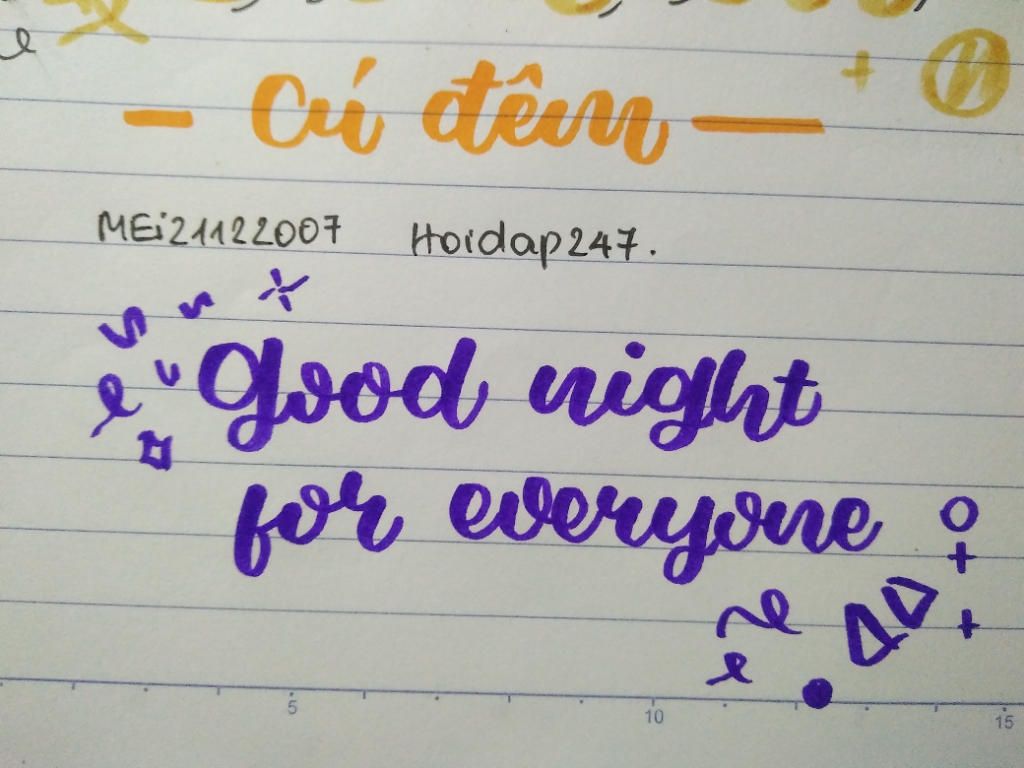 - Cú đêm -
MEi21122007 Hoidap247.
good night
for everyone
5 10 15